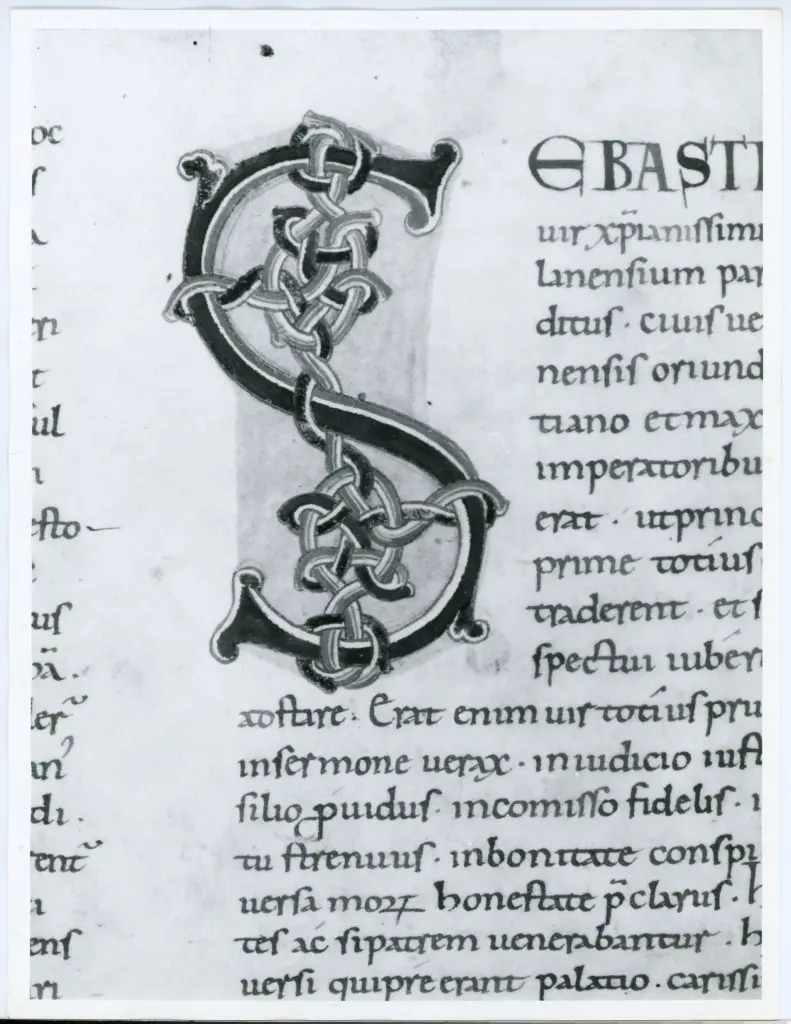 oc
ſ
eri
t
ſul
ı
eſto
uſ
ba̅.
ler
an
di.
rent
a
enſ
ri
SEBASTI
uir xp̅ianiſſimu
lanenſium par
dituſ · ciuiſ ue
nenſiſ oriund
tiano et max
imperatoribu
erat · ut princ
prime totiuſ
traderent · et ſ
ſpectui iuber
adſtare · Erat enim uir totiuſ pru
in ſermone uerax · in iudicio iuſt
ſilio ꝓuiduſ · in comiſſo fideliſ · i
tu ſtrenuuſ · in bonitate conſpi
uerſa moꝝ honeſtate p̅claruſ · h
teſ ac ſi patrem uenerabantur · h
uerſi qui pre erant palatio · cariſſi